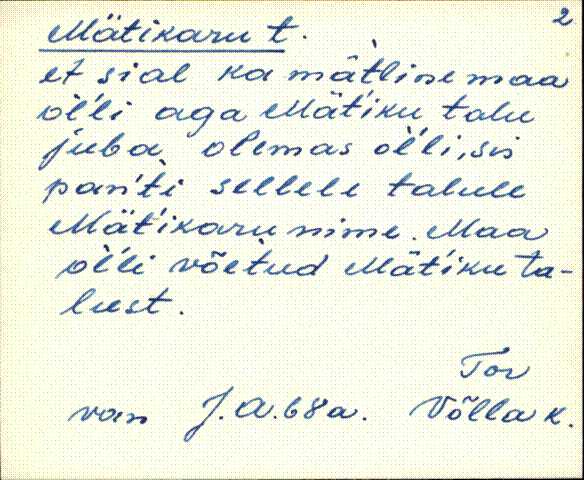 2
Mätikaru t.
et sial ka mät̀line maa
òĺli aga Mät́iku talu
juba olemas òĺli, sis
pań̀ti sellele talule
Mät́ikaru nime. Maa
òĺli võetud Mät́iku ta-
lust.
Tor
van J. A. 68 a. Võlla k.